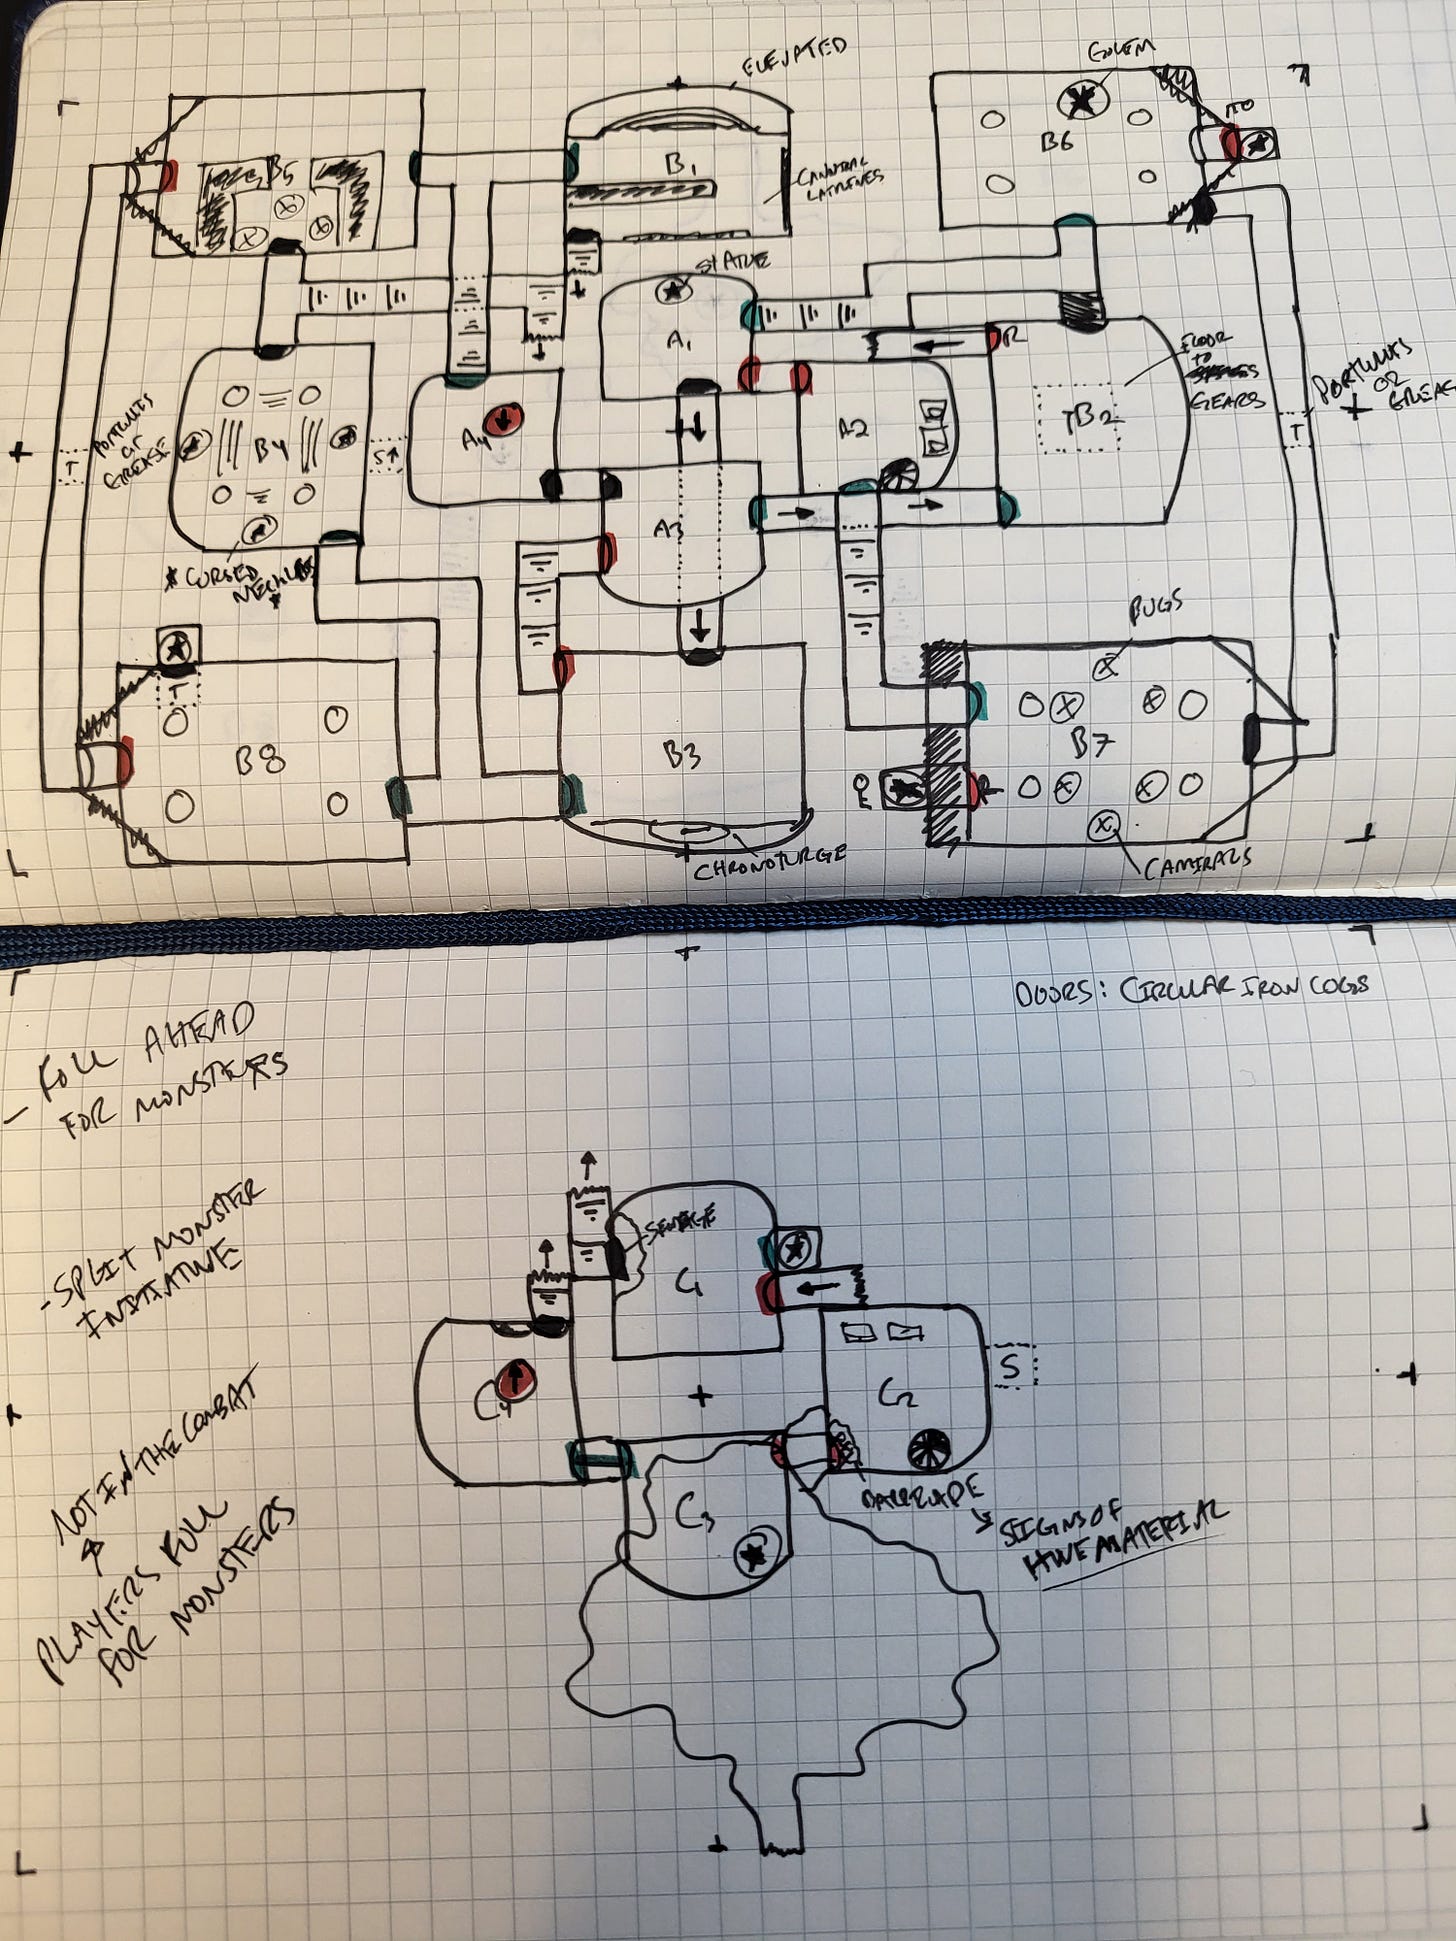 ELEVATED
GOLEM
B5
B1
B6
CANNIBAL
LATRINES
STATUE
A1
R
FLOOR
TO
GEARS
PORTCULLIS
OR
GREASE
T
PORTCULLIS
OR
GREASE
T
B4
S
A4
A2
B2
A3
* CURSED
NECKLACE
*
BUGS
T
B8
B3
B7
R
CHRONOTURGE
DOORS: CIRCULAR IRON COGS
- ROLL AHEAD
- FOR MONSTERS
SEWAGE
C1
- SPLIT MONSTER
INITIATIVE
C4
C2
S
NOT IN THE COMBAT
PLAYERS ROLL
FOR MONSTERS
C3
BARRICADE
SIGNS OF
HIVE MATERIAL